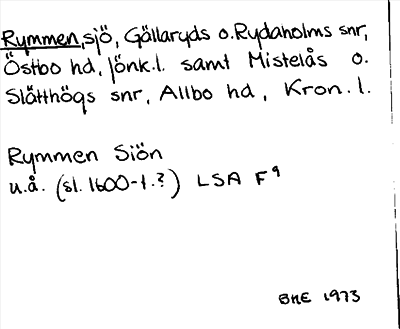 Rymmen, sjö, Gällaryds o. Rydaholms snr,
Östbo hd, Jönk.l. samt Mistelås o.
Slätthögs snr, Allbo hd, Kron. l.
Rymmen Siön
u.å. (sl. 1600-t.?) LSA F9
BHE 1973